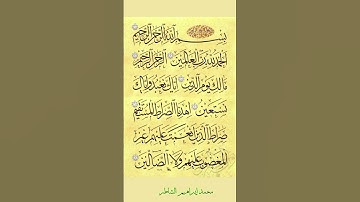 بسم الله الرحمن الرحيم
الحمد لله رب العالمين الرحمن الرحيم
مالك يوم الدين إياك نعبد وإياك
نستعين اهدنا الصراط المستقيم
صراط الذين أنعمت عليهم غير
المغضوب عليهم ولا الضالين
محمد إبراهيم الشاطر